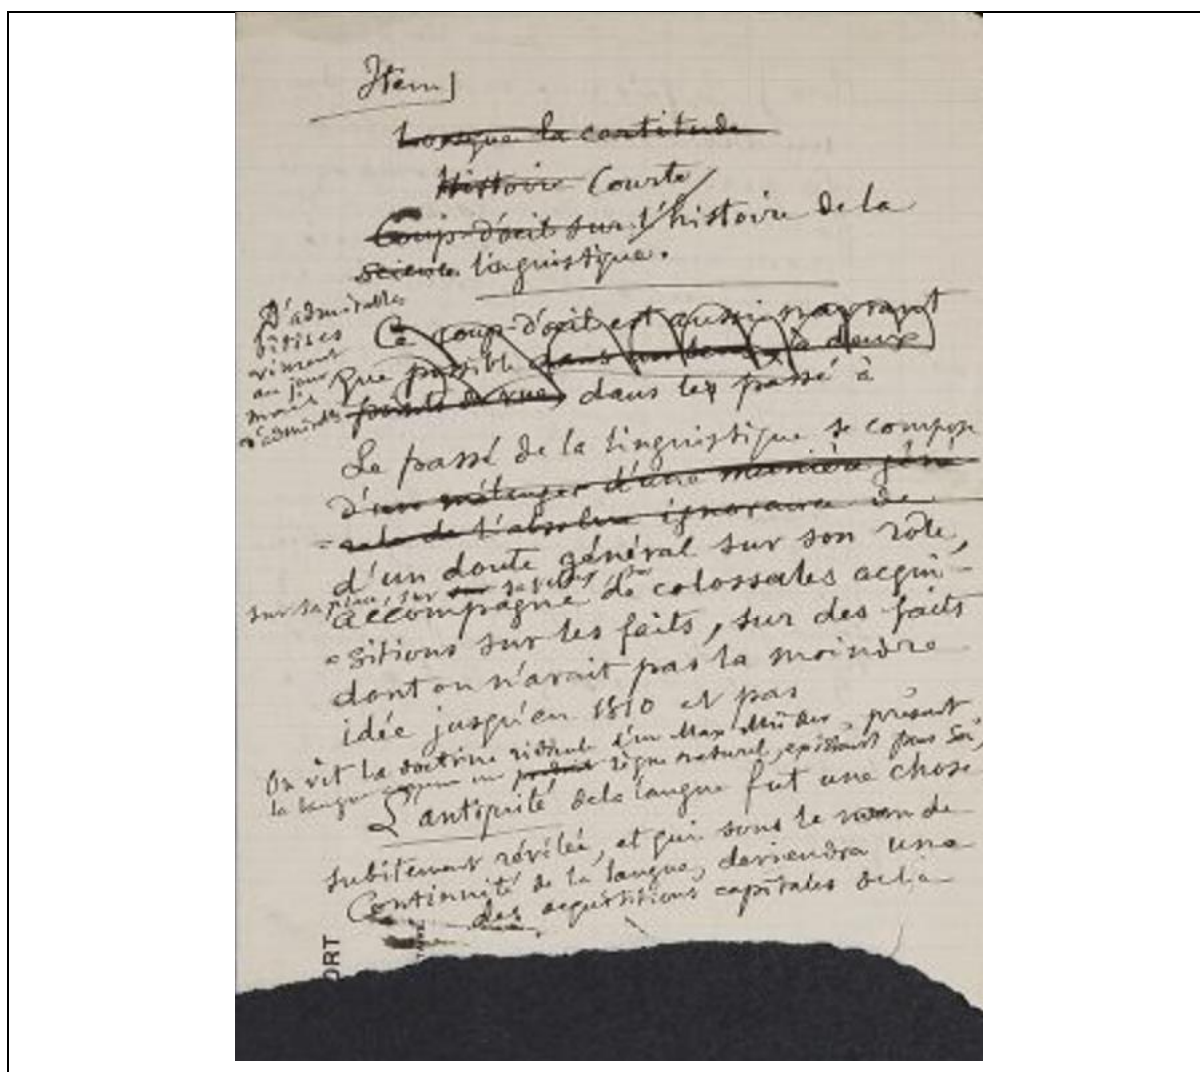 Item]
Lorsque la certitude
Histoire Courte
Coup-d'œil sur l'histoire de la
science linguistique.
D'admirables
bêtises
virent
au jour
mais
d'admirables
Ce coup-d'œil est aussi navrant
que possible dans un deux à deux
points de vue, dans le passé à
Le passé de la linguistique se compose
d'un mélange d'une manière géné
-rale de l'absolue ignorance de
d'un doute général sur son rôle,
sur sa place, sur sa
accompagné de colossales acqui-
-sitions sur les faits, sur des faits
dont on n'avait pas la moindre
idée jusqu'en 1810 et pas
On vit la doctrine ridicule d'un Max Müller, présent
la langue comme un produit règne naturel, existant pour soi,
L'antiquité de la langue fut une chose
subitement révélée, et qui sous le nom de
Continuité de la langue, deviendra une
des acquisitions capitales de la
ORT